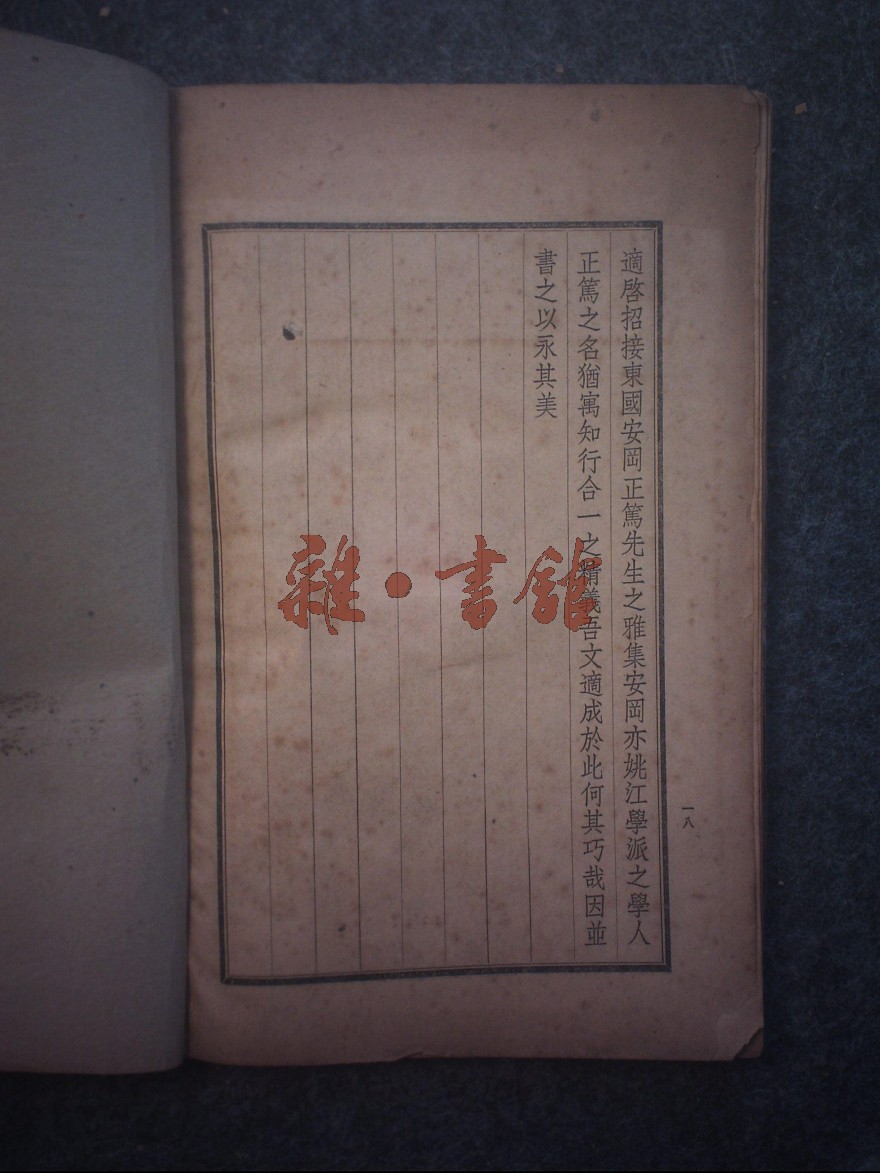 適啓招接東國安岡正篤先生之雅集安岡亦姚江學派之學人
正篤之名猶寓知行合一之精義吾文適成於此何其巧哉因並
書之以永其美
一八
雜·書館